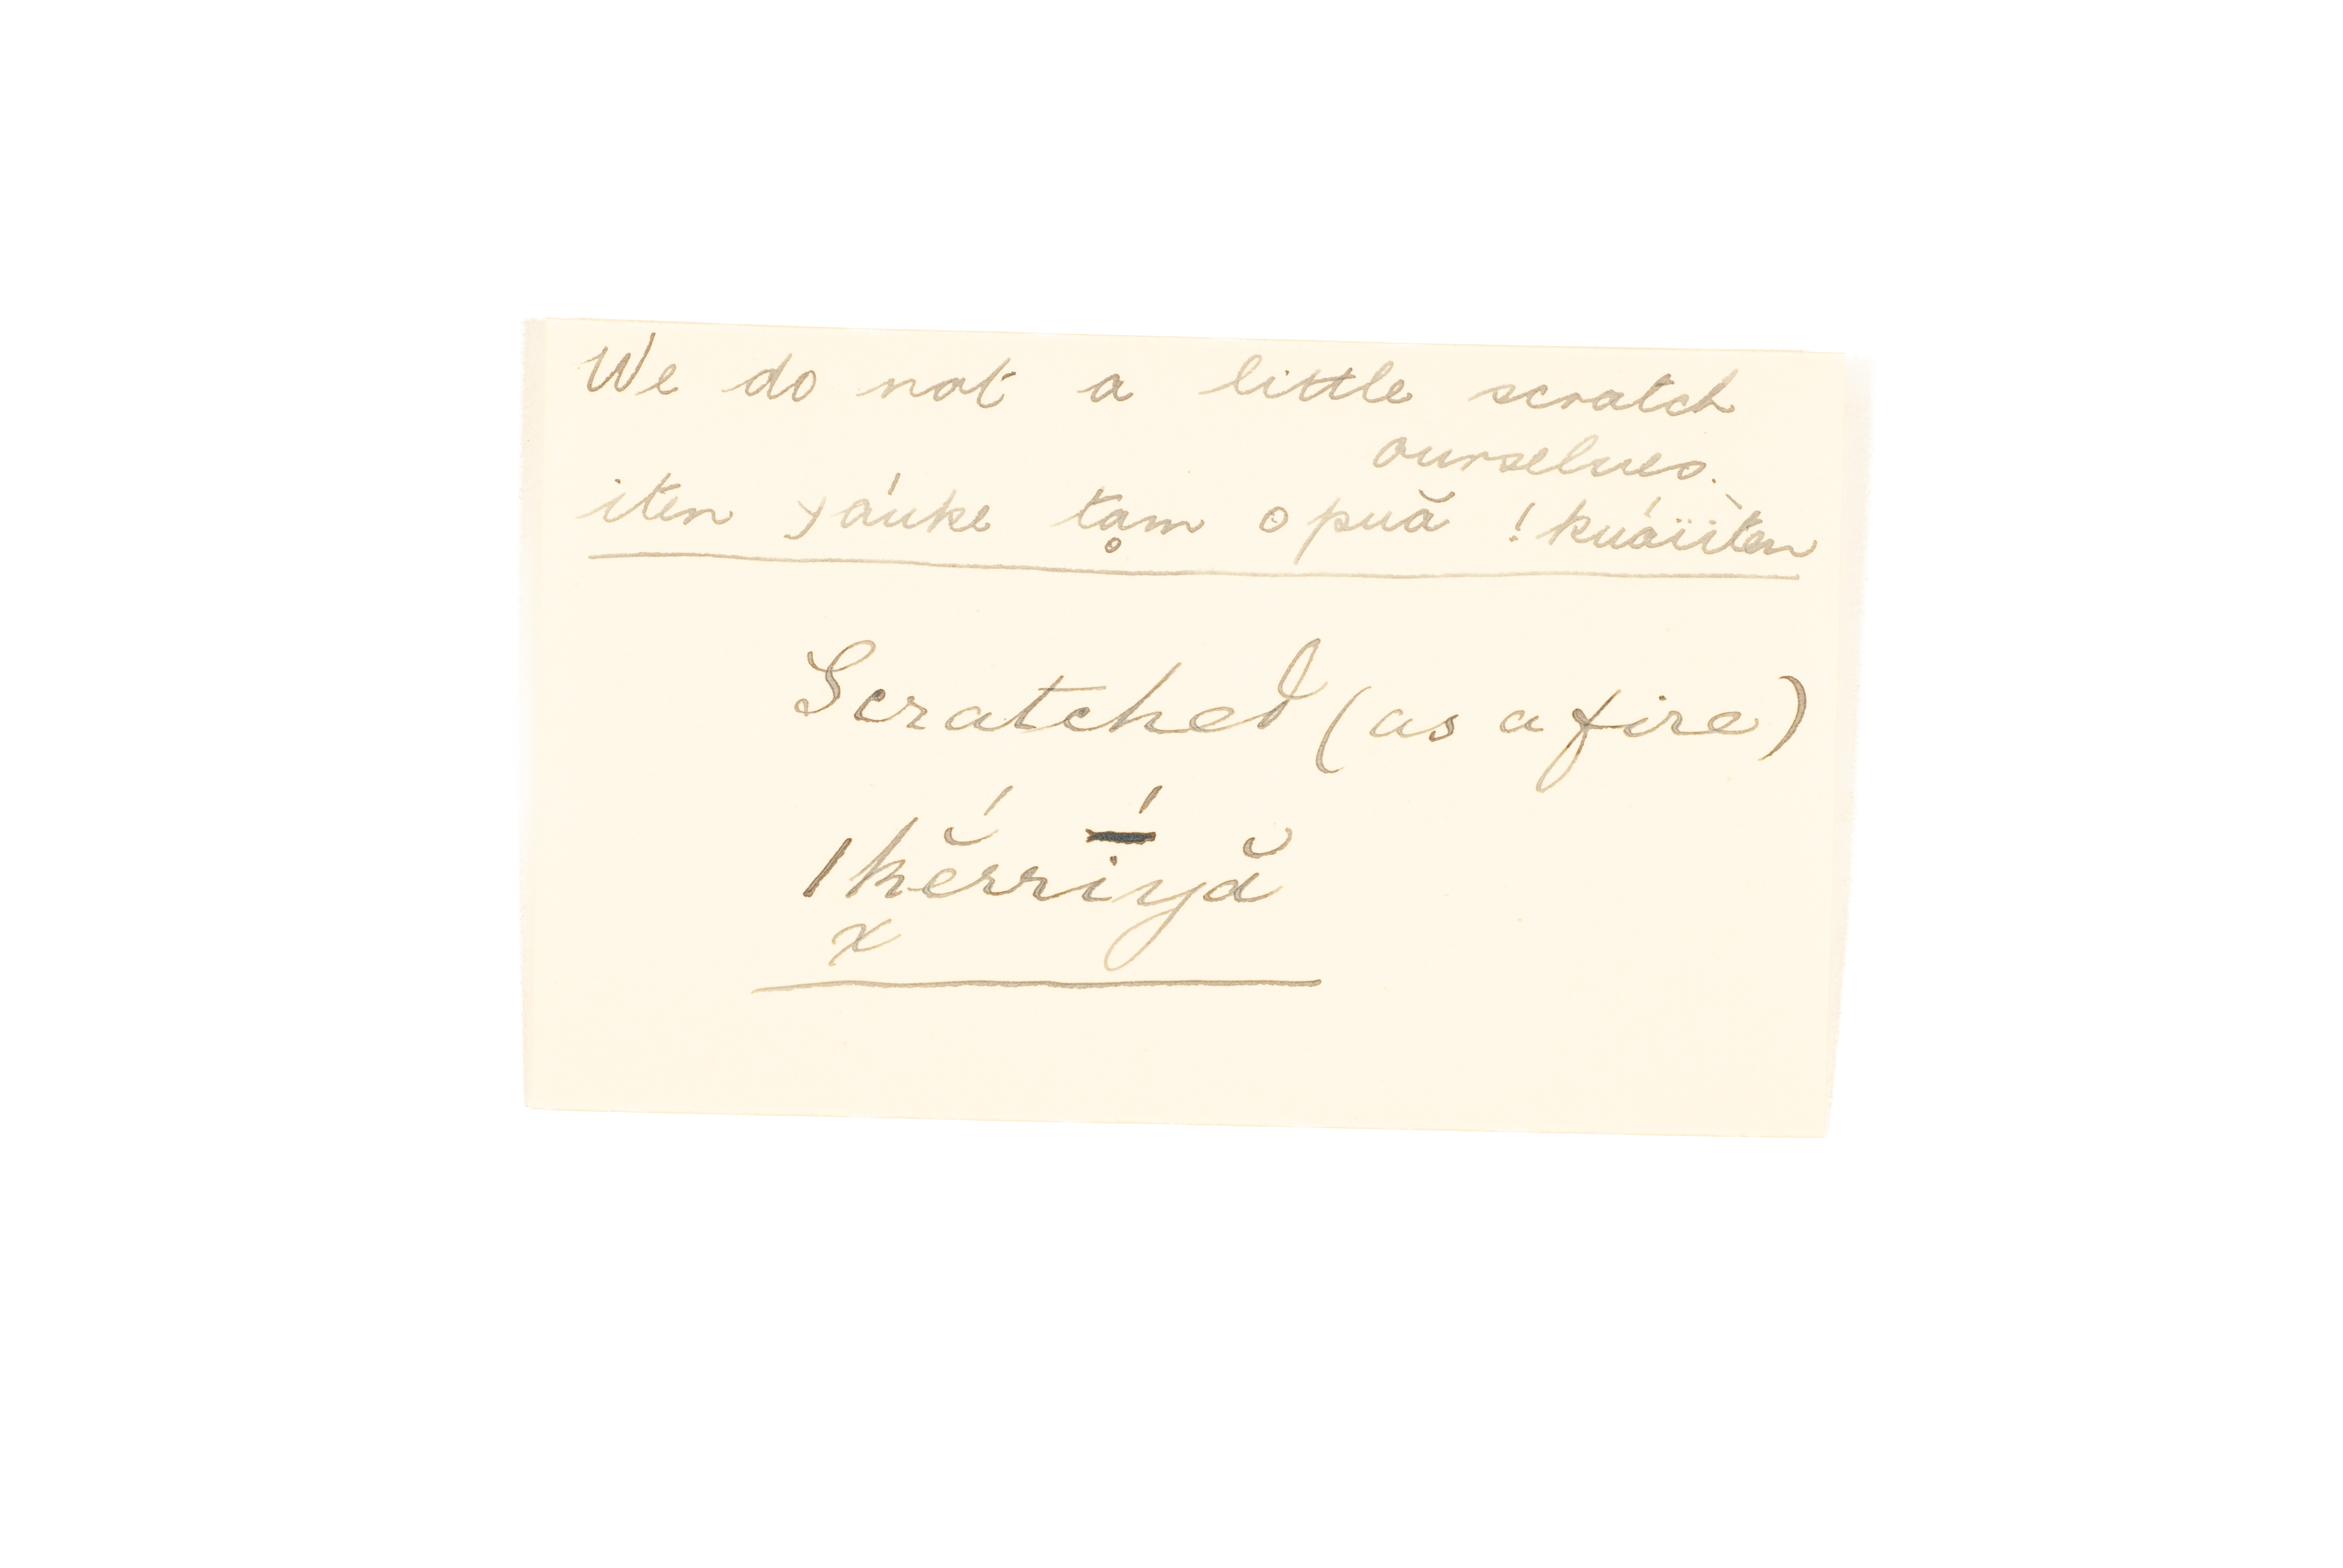 We do not a little scratch
ourselves.
iten yáuke tam̥ o puă ! kuáïïten
Scratched (as a fire)
/kĕ́rriyă
x